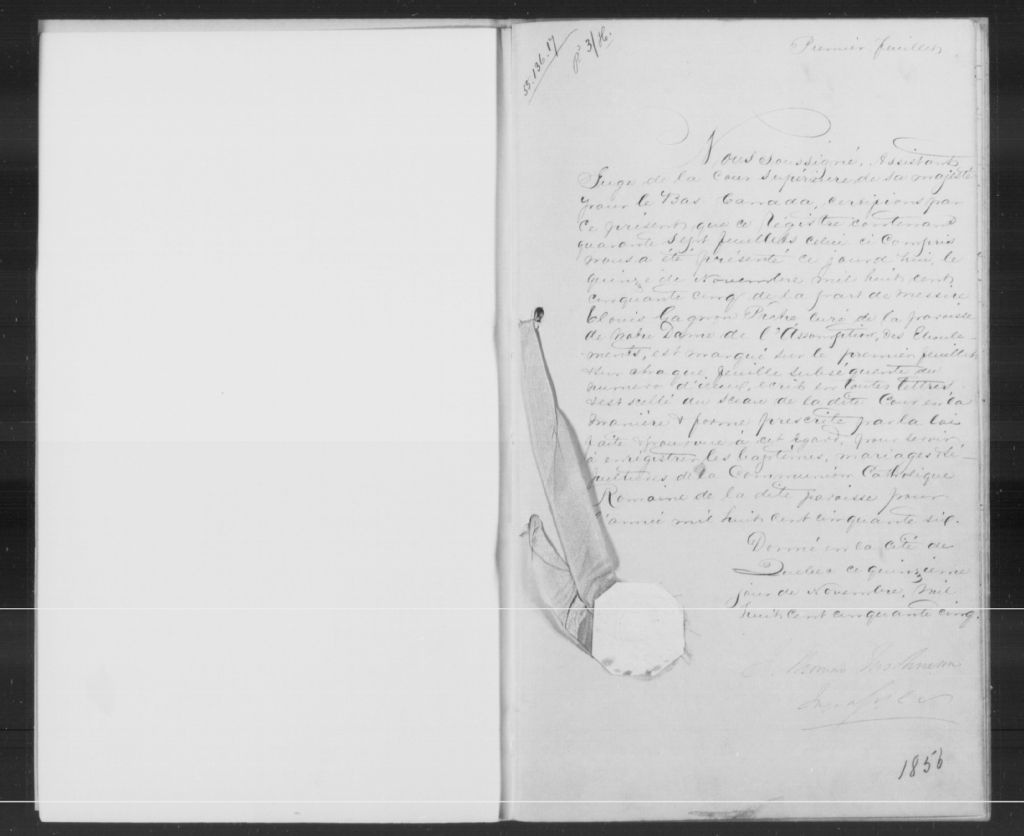 55.136.17
3/H.
Premier feuillet
Nous soussigné, Assistant
Juge de la Cour Supérieure de sa majesté
pour le Bas Canada, certifions par
ce présent que ce Régistre contenant
quarante Sept feuillets celui ci Compris
nous a été présenté ce jourd'hui, le
quinze de Novembre mil huit cent
cinquante cinq de la part de Messire
Clouis Gagnon Prêtre Curé de la paroisse
de Notre Dame de l'Assomption, des Eboule-
-ments, est marqué sur le premier feuillet
& sur chaque feuille subséquente du
numero d'iceux, écrit en toutes lettres,
& est scellé du sceau de la dite Cour en la
manière & forme prescrite par la loi
faite & pourvue à cet égard, pour servir
à enrégistrer les baptêmes, mariages & sé-
pultures de la Communion Catholique
Romaine de la dite paroisse pour
l'année mil huit cent cinquante six.
Donné en la cité de
Quebec ce quinzième
jour de Novembre, mil
huit cent cinquante cinq.
1856